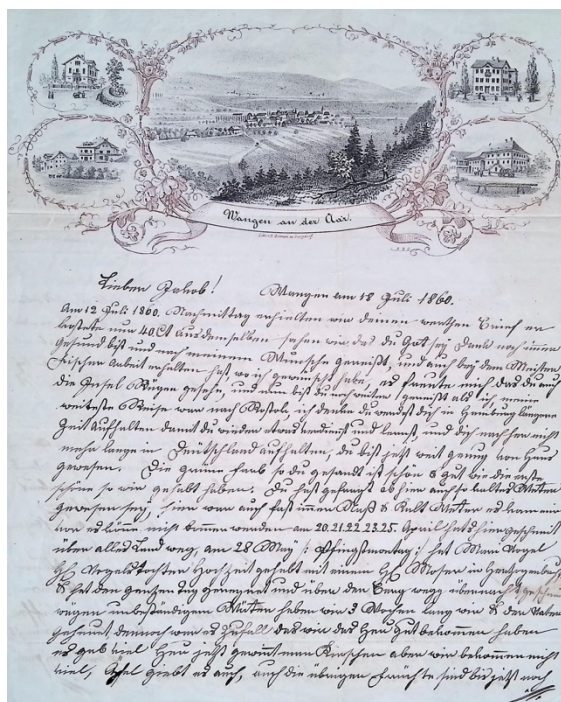 Wangen an der Aar.
Lieben Jakob! Wangen am 18 Juli 1860.
Am 12 Juli 1860. Nachmittag erhielten wir deinen werthen Brief er
kostete nur 40 Ct Aus demselben sehen wir das du Gott sey Dank noch immer
gesund bist und nach meinem Wunsche gereißt, und auch bey dem Meister
Fischer Arbeit erhalten hast wo ich gewünscht habe, es freute mich das du auch
die Insel Rügen gesehen, und nun bist du noch weiter gereißt als ich, meine
weiteste Reise war nach Rostok, ich denke du werdest dich in Hamburg längere
Zeit aufhalten damit du wieder etwas verdienst und lernst, und dich nachher nicht
mehr lange in Deutschland aufhalten, du bist jetzt weit genug von Haus
gewesen. Die grüne Farb so du gesandt ist schön & gut wie die erste
schöne so wir gehabt haben. Du hast gefragt ob hier auch so kaltes Wetter
gewesen sey, hier war auch fast immer Naß & Kalt Wetter es kam mir
vor es könne nicht Sommer werden am 20. 21. 22. 23. 25. April hats hier geschneit
über alles Land weg, am 28 May : Pfingstmontag : hat Mari Vogel
Vogels Tochter Hochzeit gehabt mit einem Moser in Herzogenbuchse
& hat den ganzen Tag geregnet und über den Berg wegg übernacht geschneit
wegen unbeständigem Wetter haben wir 3 Wochen lang wir & der Vater
geheuet, dennoch war es Zufall das wir das Heu gut bekommen haben
es gab viel Heu jetzt gewinnt man Kirschen aber wir bekommen nicht
viel, Obst giebt es auch, auch die übrigen Früchte sind bis jetzt noch